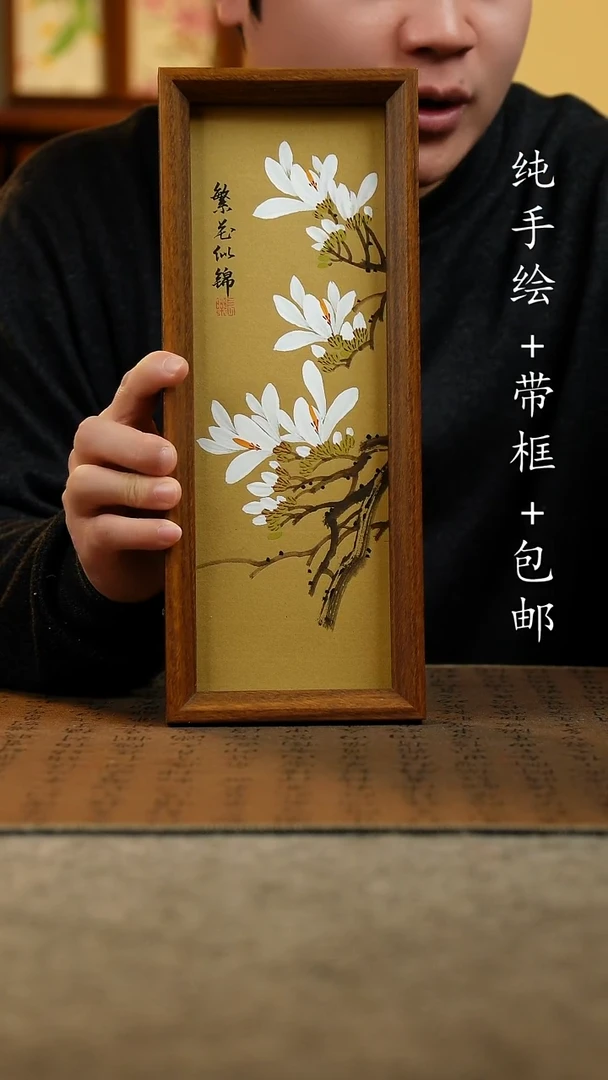 纯手绘+带框+包邮
繁花似锦